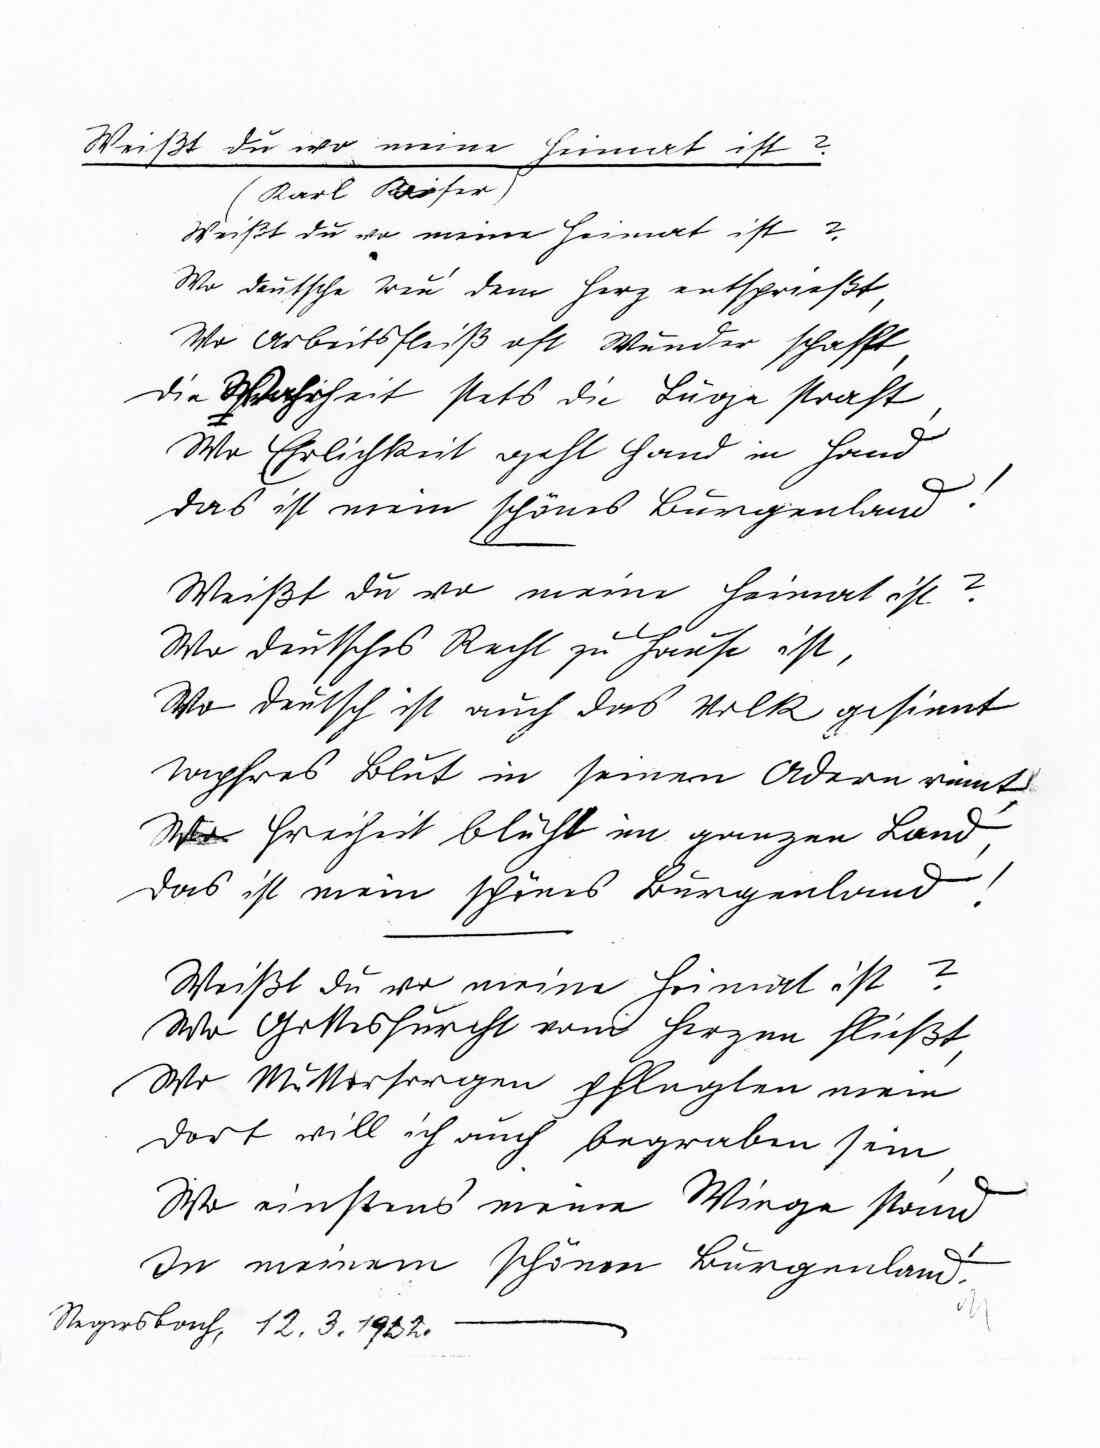 Weißt du wo meine Heimat ist?
(Karl Kaiser)
Weißt du wo meine Heimat ist?
Wo deutsche Treu' dem Herz entsprießt,
Wo Arbeitsfleiß oft Wunder schafft,
die Wahrheit stets die Lüge straft,
Wo Ehrlichkeit geht Hand in Hand
das ist mein schönes Burgenland!
Weißt du wo meine Heimat ist?
Wo deutsches Recht zu Hause ist,
Wo deutsch ist auch das Volk gesinnt
tapfres Blut in seinen Adern rinnt,
Wo Freiheit blüht im ganzen Land,
das ist mein schönes Burgenland!
Weißt du wo meine Heimat ist?
Wo Gottesfurcht vom Herzen fließt,
Wo Muttersorgen pflegten mein
dort will ich auch begraben sein,
Wo einstens meine Wiege stand
In meinem schönen Burgenland!
12. 3. 1922.